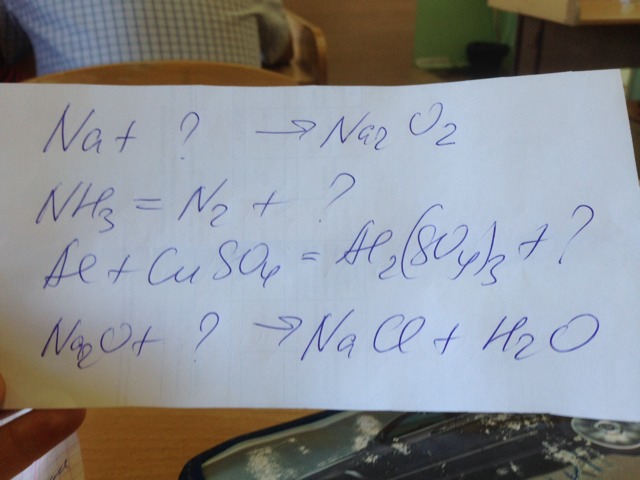 Na + ? → Na₂O₂
NH₃ = N₂ + ?
Al + CuSO₄ = Al₂(SO₄)₃ + ?
Na₂O + ? → NaCl + H₂O